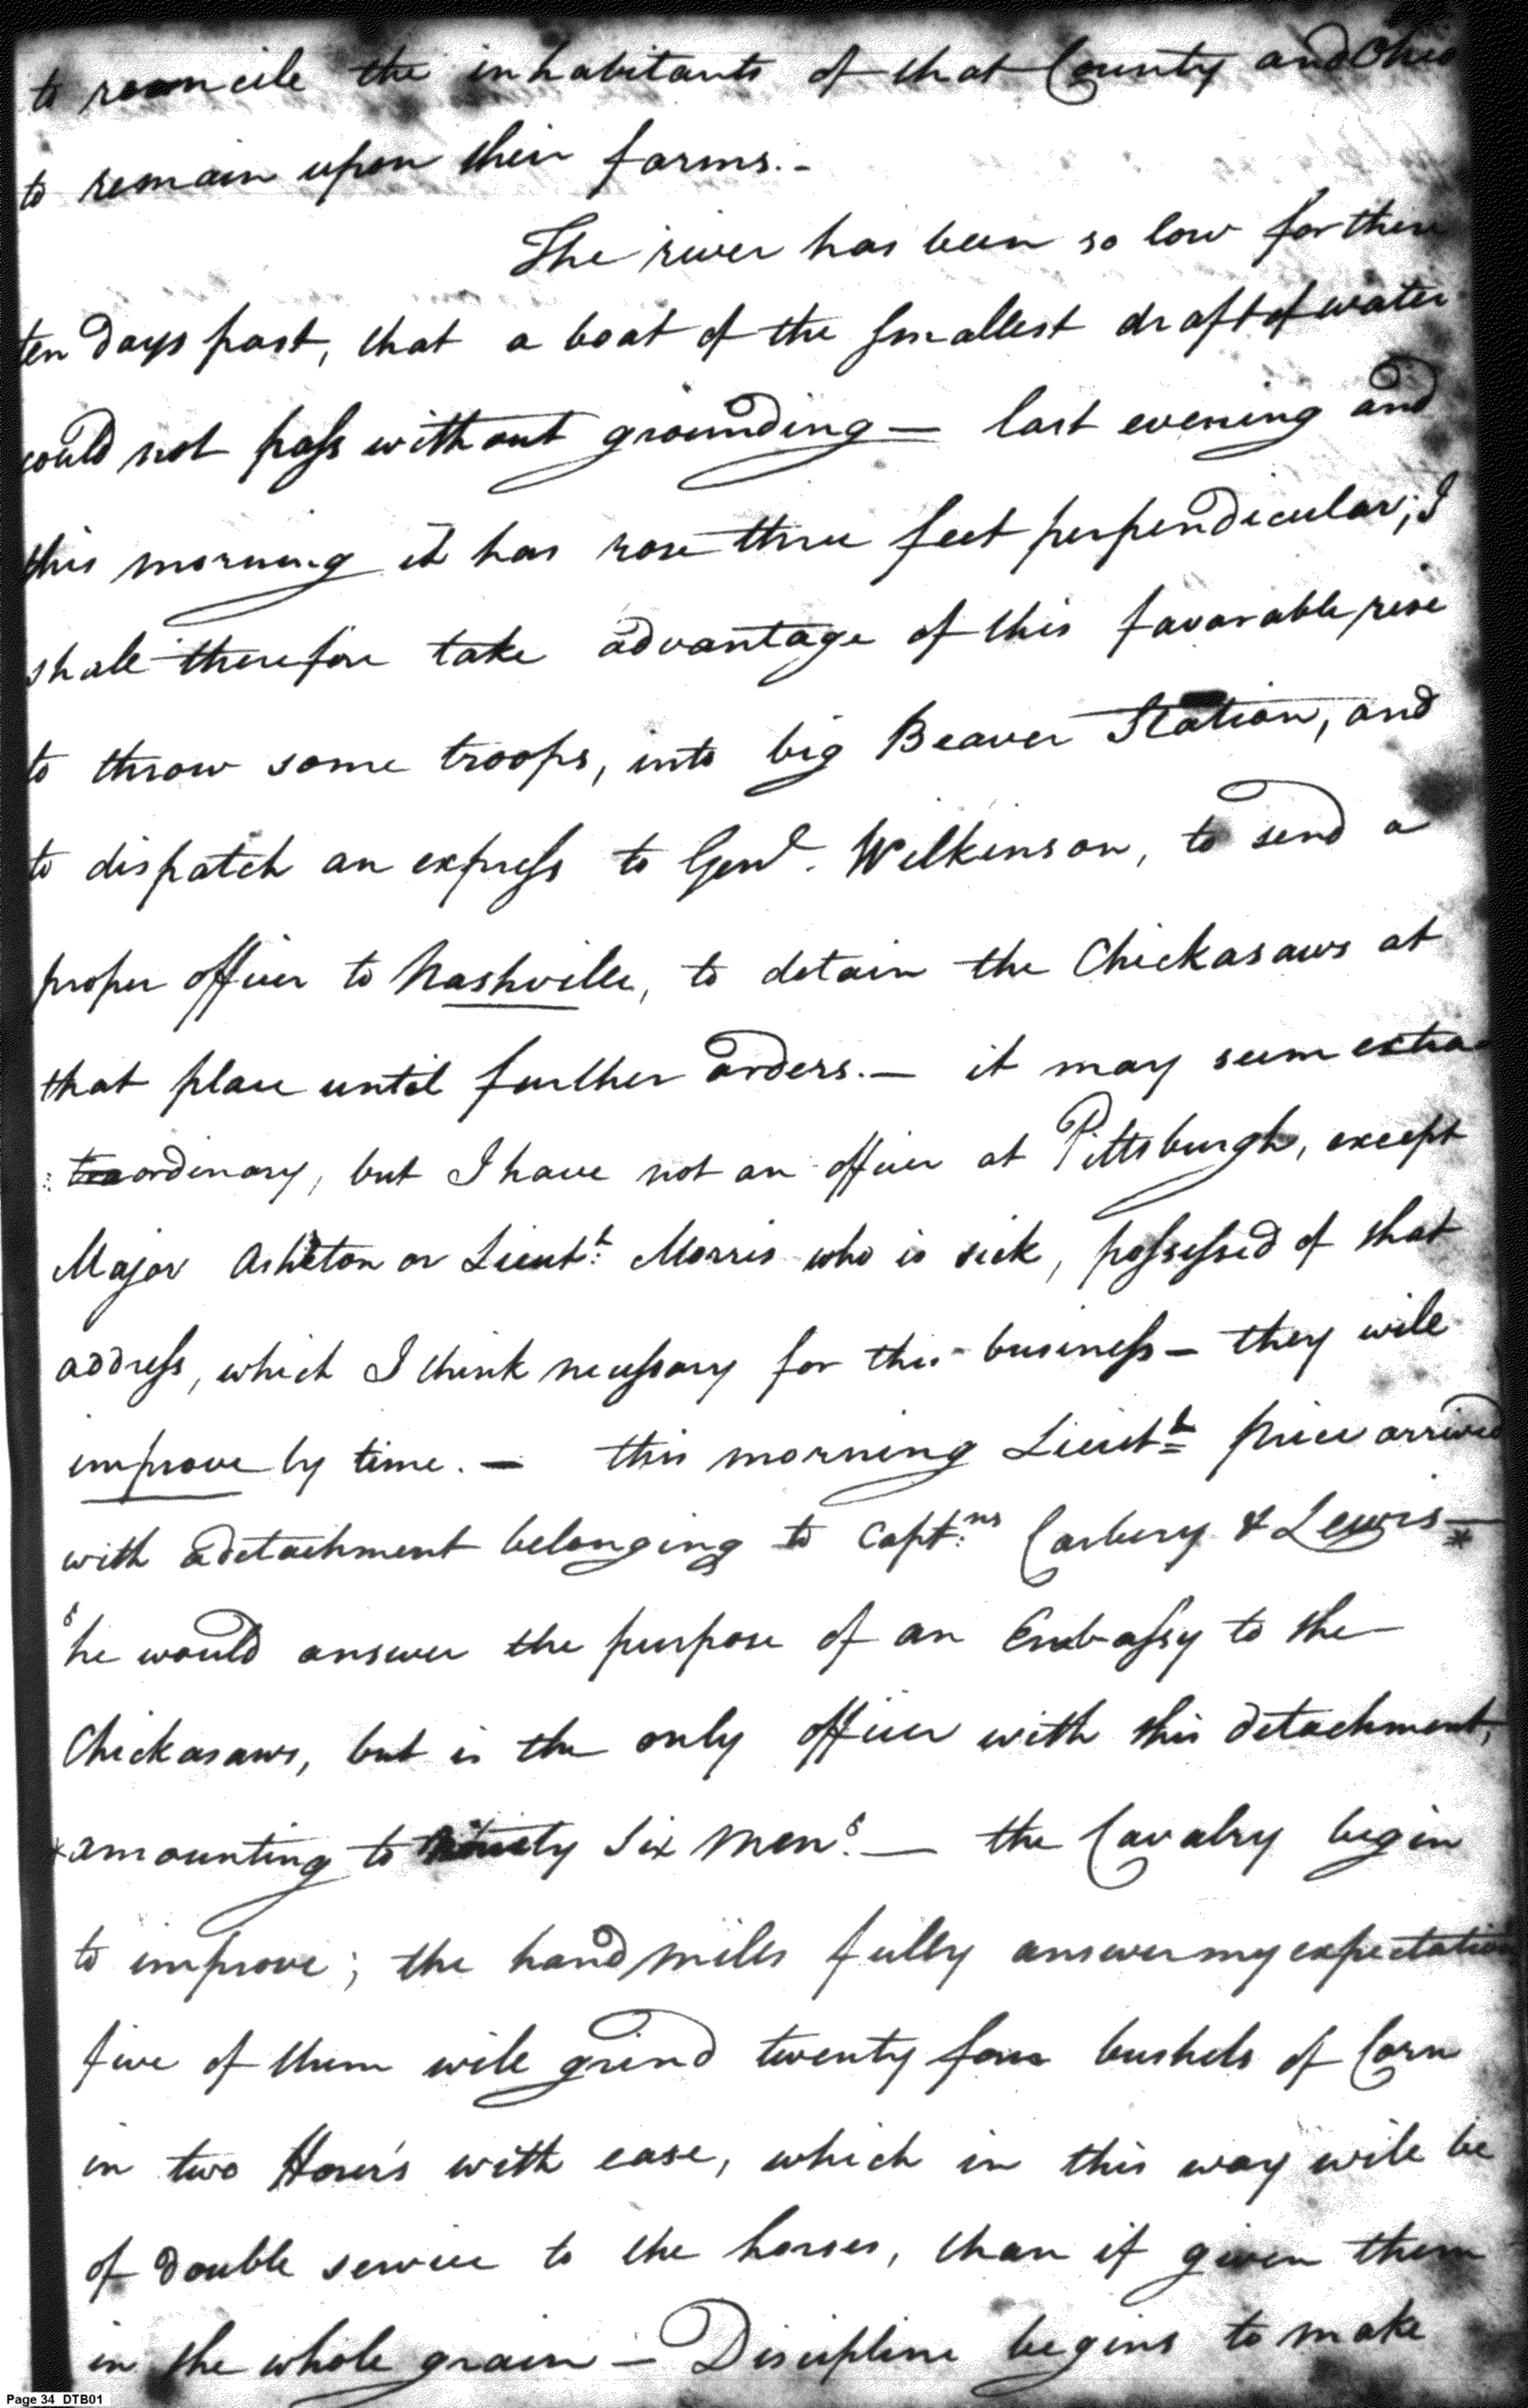 to reconcile the inhabitants of that County and Ohio
to remain upon their farms.-
The river has been so low for these
ten days past, that a boat of the smallest draft of water
could not pass without grounding — last evening and
this morning it has rose three feet perpendicular; I
shall therefore take advantage of this favorable rise
to throw some troops, into big Beaver Station, and
to dispatch an express to Genl. Wilkinson, to send a
proper officer to Nashville, to detain the Chickasaws at
that place until further orders.— it may seem extra
: traordinary, but I have not an officer at Pittsburgh, except
Major Asheton or Lieut.t Morris who is sick, possessed of that
address, which I think necessary for this business — they will
improve by time. — this morning Lieutt Price arrived
with a detachment belonging to Capt:ns Carbery & Lewis — *
§ he would answer the purpose of an Embassy to the
Chickasaws, but is the only officer with this detachment,
* amounting to Ninety Six Men.§ — the Cavalry begin
to improve; the hand Mills fully answer my expectation
five of them will grind twenty four bushels of Corn
in two Hours with ease, which in this way will be
of double service to the horses, than if given them
in the whole grain — Discipline begins to make
Page 34 DTB01